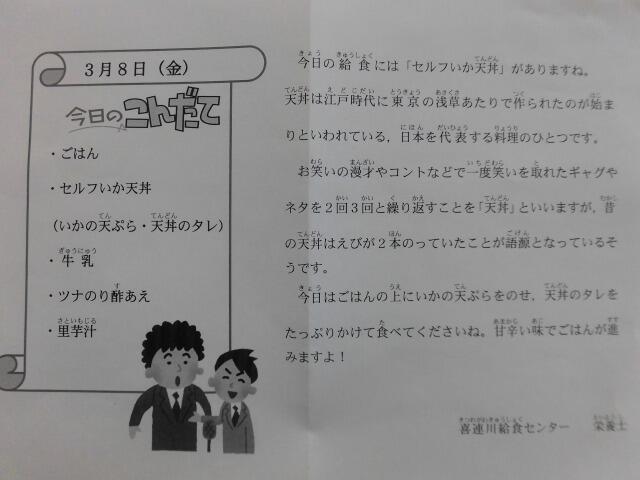 3月8日（金）
今日のこんだて
・ごはん
・セルフいか天丼
（いかの天ぷら・天丼のタレ）
・牛乳
・ツナのり酢あえ
・里芋汁
今日の給食には「セルフいか天丼」がありますね。
天丼は江戸時代に東京の浅草あたりで作られたのが始ま
りといわれている，日本を代表する料理のひとつです。
お笑いの漫才やコントなどで一度笑いを取れたギャグや
ネタを2回3回と繰り返すことを「天丼」といいますが，昔
の天丼はえびが2本のっていたことが語源となっているそ
うです。
今日はごはんの上にいかの天ぷらをのせ，天丼のタレを
たっぷりかけて食べてくださいね。甘辛い味でごはんが進
みますよ！
喜連川給食センター　栄養士